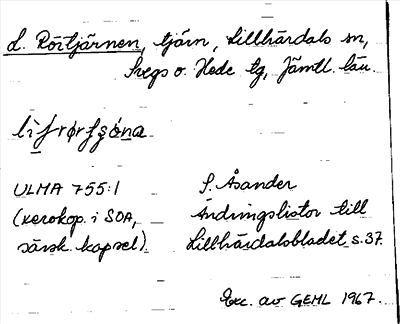 L. Rörtjärnen, tjärn, Lillhärdals sn,
Svegs o. Hede tg, Jämtl. län.
ULMA 755:1
(xerokop. i SOA,
särsk. kapsel)
S. Åsander
Ändringslistor till
Lillhärdalsbladet s. 37.
Exc. av GEHL 1967.